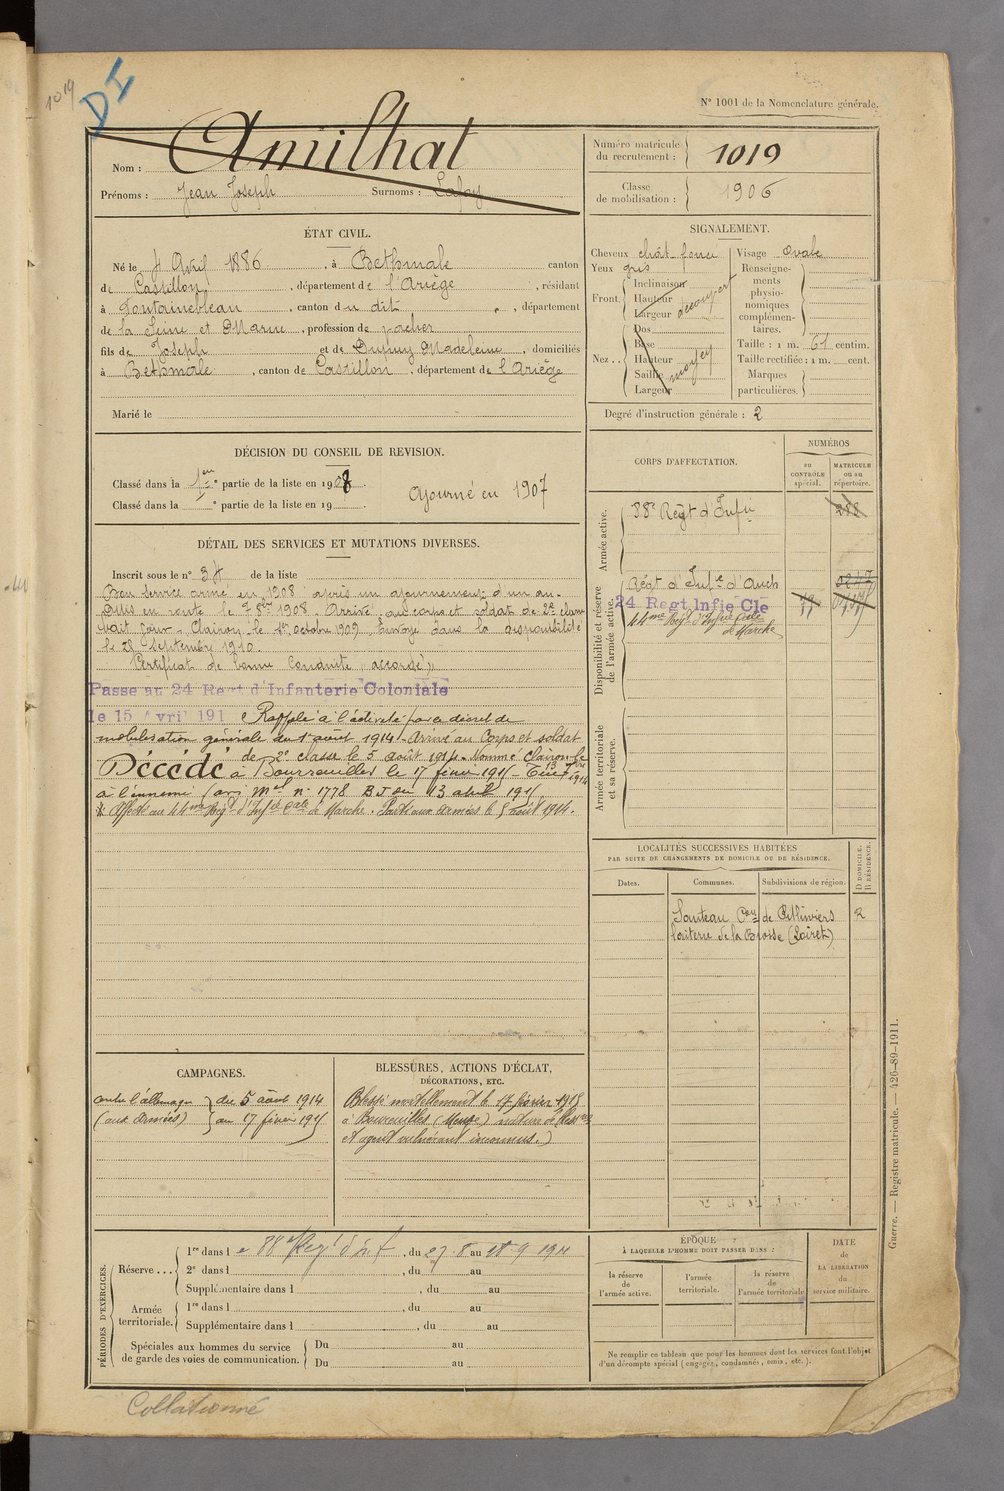 1019
DI
N° 1001 de la Nomenclature générale.
Nom : Amilhat
Prénoms : Jean Joseph Surnoms :
Numéro matricule du recrutement : 1019
Classe de mobilisation : 1906
ÉTAT CIVIL.
Né le 4 Avril 1886, à Bethmale canton
de Castillon, département de l'Ariège, résidant
à Fontainebleau, canton du dit, département
de la Seine et Marne, profession de vacher
fils de Joseph et de Dupuy Madeleine, domiciliés
à Bethmale, canton de Castillon, département de l'Ariège
Marié le
SIGNALEMENT.
Cheveux chât. foncé
Yeux gris
Front. Inclinaison Hauteur Largeur découvert
Nez .. Dos Base Hauteur Saillie Largeur moyen
Visage Ovale
Renseignements physionomiques complémentaires.
Taille : 1 m. 61 centim.
Taille rectifiée : 1 m. cent.
Marques particulières.
Degré d'instruction générale : 2
DÉCISION DU CONSEIL DE REVISION.
Classé dans la 1ère partie de la liste en 1908
Classé dans la ° partie de la liste en 19
ajourné en 1907
DÉTAIL DES SERVICES ET MUTATIONS DIVERSES.
Inscrit sous le n° 34 de la liste
Bon service armé en 1908 après un ajournement d'un an.
Mis en route le 7 8bre 1908. Arrivé au corps et soldat de 2e classe
ledit jour. Clairon le 1er octobre 1909. Envoyé dans la disponibilité
le 28 Septembre 1910.
Certificat de bonne conduite "accordé"
Passe au 24 Regt d'Infanterie Coloniale
le 15 Avril 191 Rappelé à l'activité par décret de
mobilisation générale du 1er août 1914. Arrivé au Corps et soldat
de 2e classe le 5 août 1914. Nommé Clairon le
13 1914
Décédé à Bourreuilles le 17 février 1915 - Tué
à l'ennemi avis Mel n° 1778 BJ du 13 avril 1915
* Affecté au 44me Régt d'Infie Cale de Marche. Parti aux armées le 5 août 1914.
CORPS D'AFFECTATION.
NUMÉROS
au CONTRÔLE spécial.
MATRICULE ou au répertoire.
Armée active.
88e Régt d'Infie
218
Disponibilité et réserve de l'armée active.
Régt d'Infie d'Auch
24 Regt Infie Cle
44me Régt d'Infie Cale de Marche
Armée territoriale et sa réserve.
LOCALITÉS SUCCESSIVES HABITÉES
PAR SUITE DE CHANGEMENTS DE DOMICILE OU DE RÉSIDENCE.
Dates.
Communes.
Subdivisions de région.
D DOMICILE. R RÉSIDENCE.
Santeau Con de Pithiviers
de la Brosse (Loiret)
CAMPAGNES.
contre l'allemagne du 5 août 1914
(aux armées) au 17 février 1915
BLESSURES, ACTIONS D'ÉCLAT,
DÉCORATIONS, ETC.
Blessé mortellement le 17 février 1915
à Boureuilles (Meuse) nature de blessures
et agent vulnérant inconnus.)
PÉRIODES D'EXERCICES.
Réserve ... 1re dans le 88e Regt d'inf, du 27.8 au 18.9 1911
2e dans l , du au
Supplémentaire dans l , du au
Armée territoriale. 1re dans l , du au
Supplémentaire dans l , du au
Spéciales aux hommes du service de garde des voies de communication. Du au
Du au
ÉPOQUE
À LAQUELLE L'HOMME DOIT PASSER DANS :
la réserve de l'armée active.
l'armée territoriale.
la réserve de l'armée territoriale
DATE de LA LIBÉRATION du service militaire.
Ne remplir ce tableau que pour les hommes dont les services font l'objet
d'un décompte spécial (engagés, condamnés, omis, etc.).
Guerre. — Registre matricule. — 426-89-1911.
Collationné